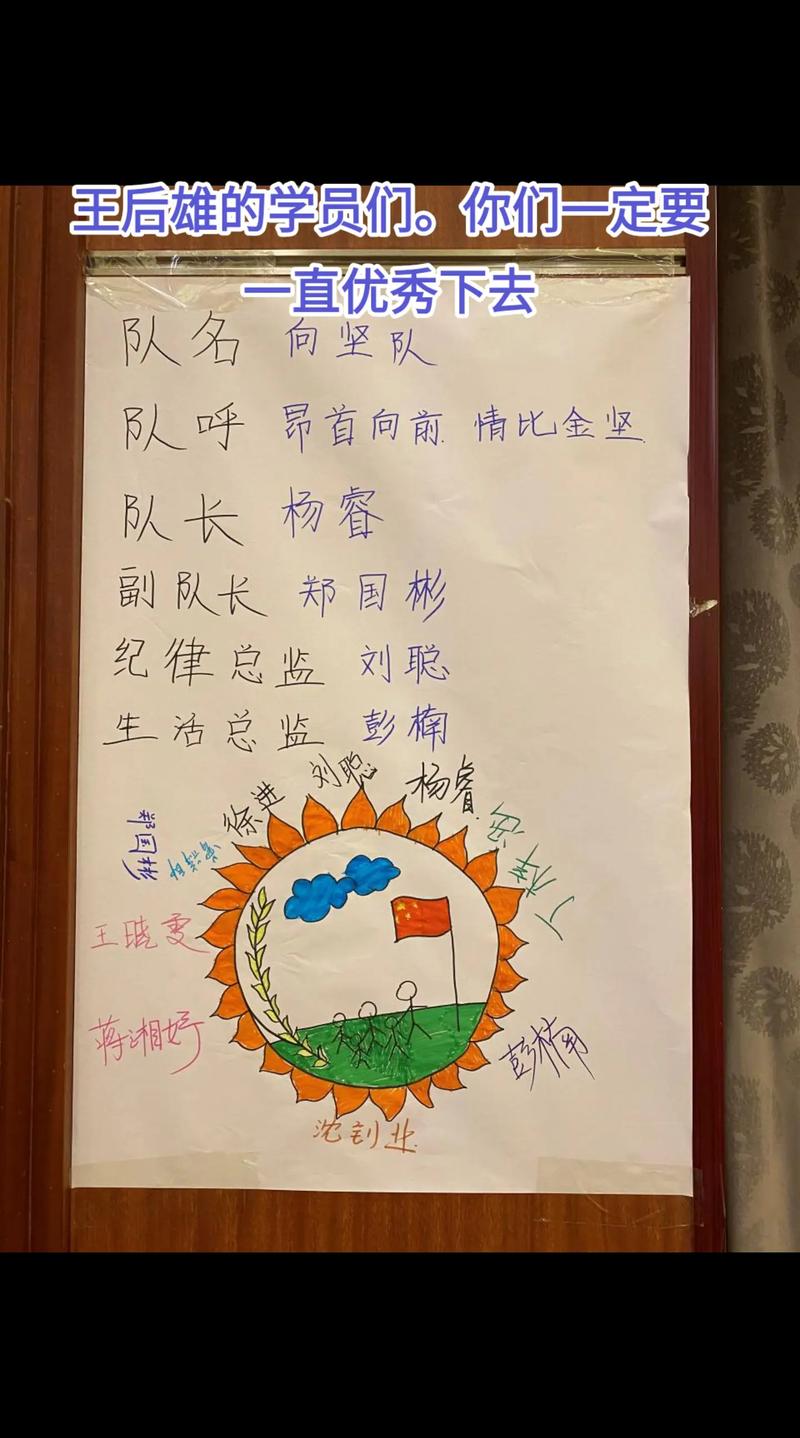 王后雄的学员们。你们一定要
一直优秀下去
队名 向坚队
队呼 昂首向前 情比金坚
队长 杨睿
副队长 郑国彬
纪律总监 刘聪
生活总监 彭楠
徐进 刘聪 杨睿
郑国彬
王晓雯
蒋湘婷
彭楠
沈钊业